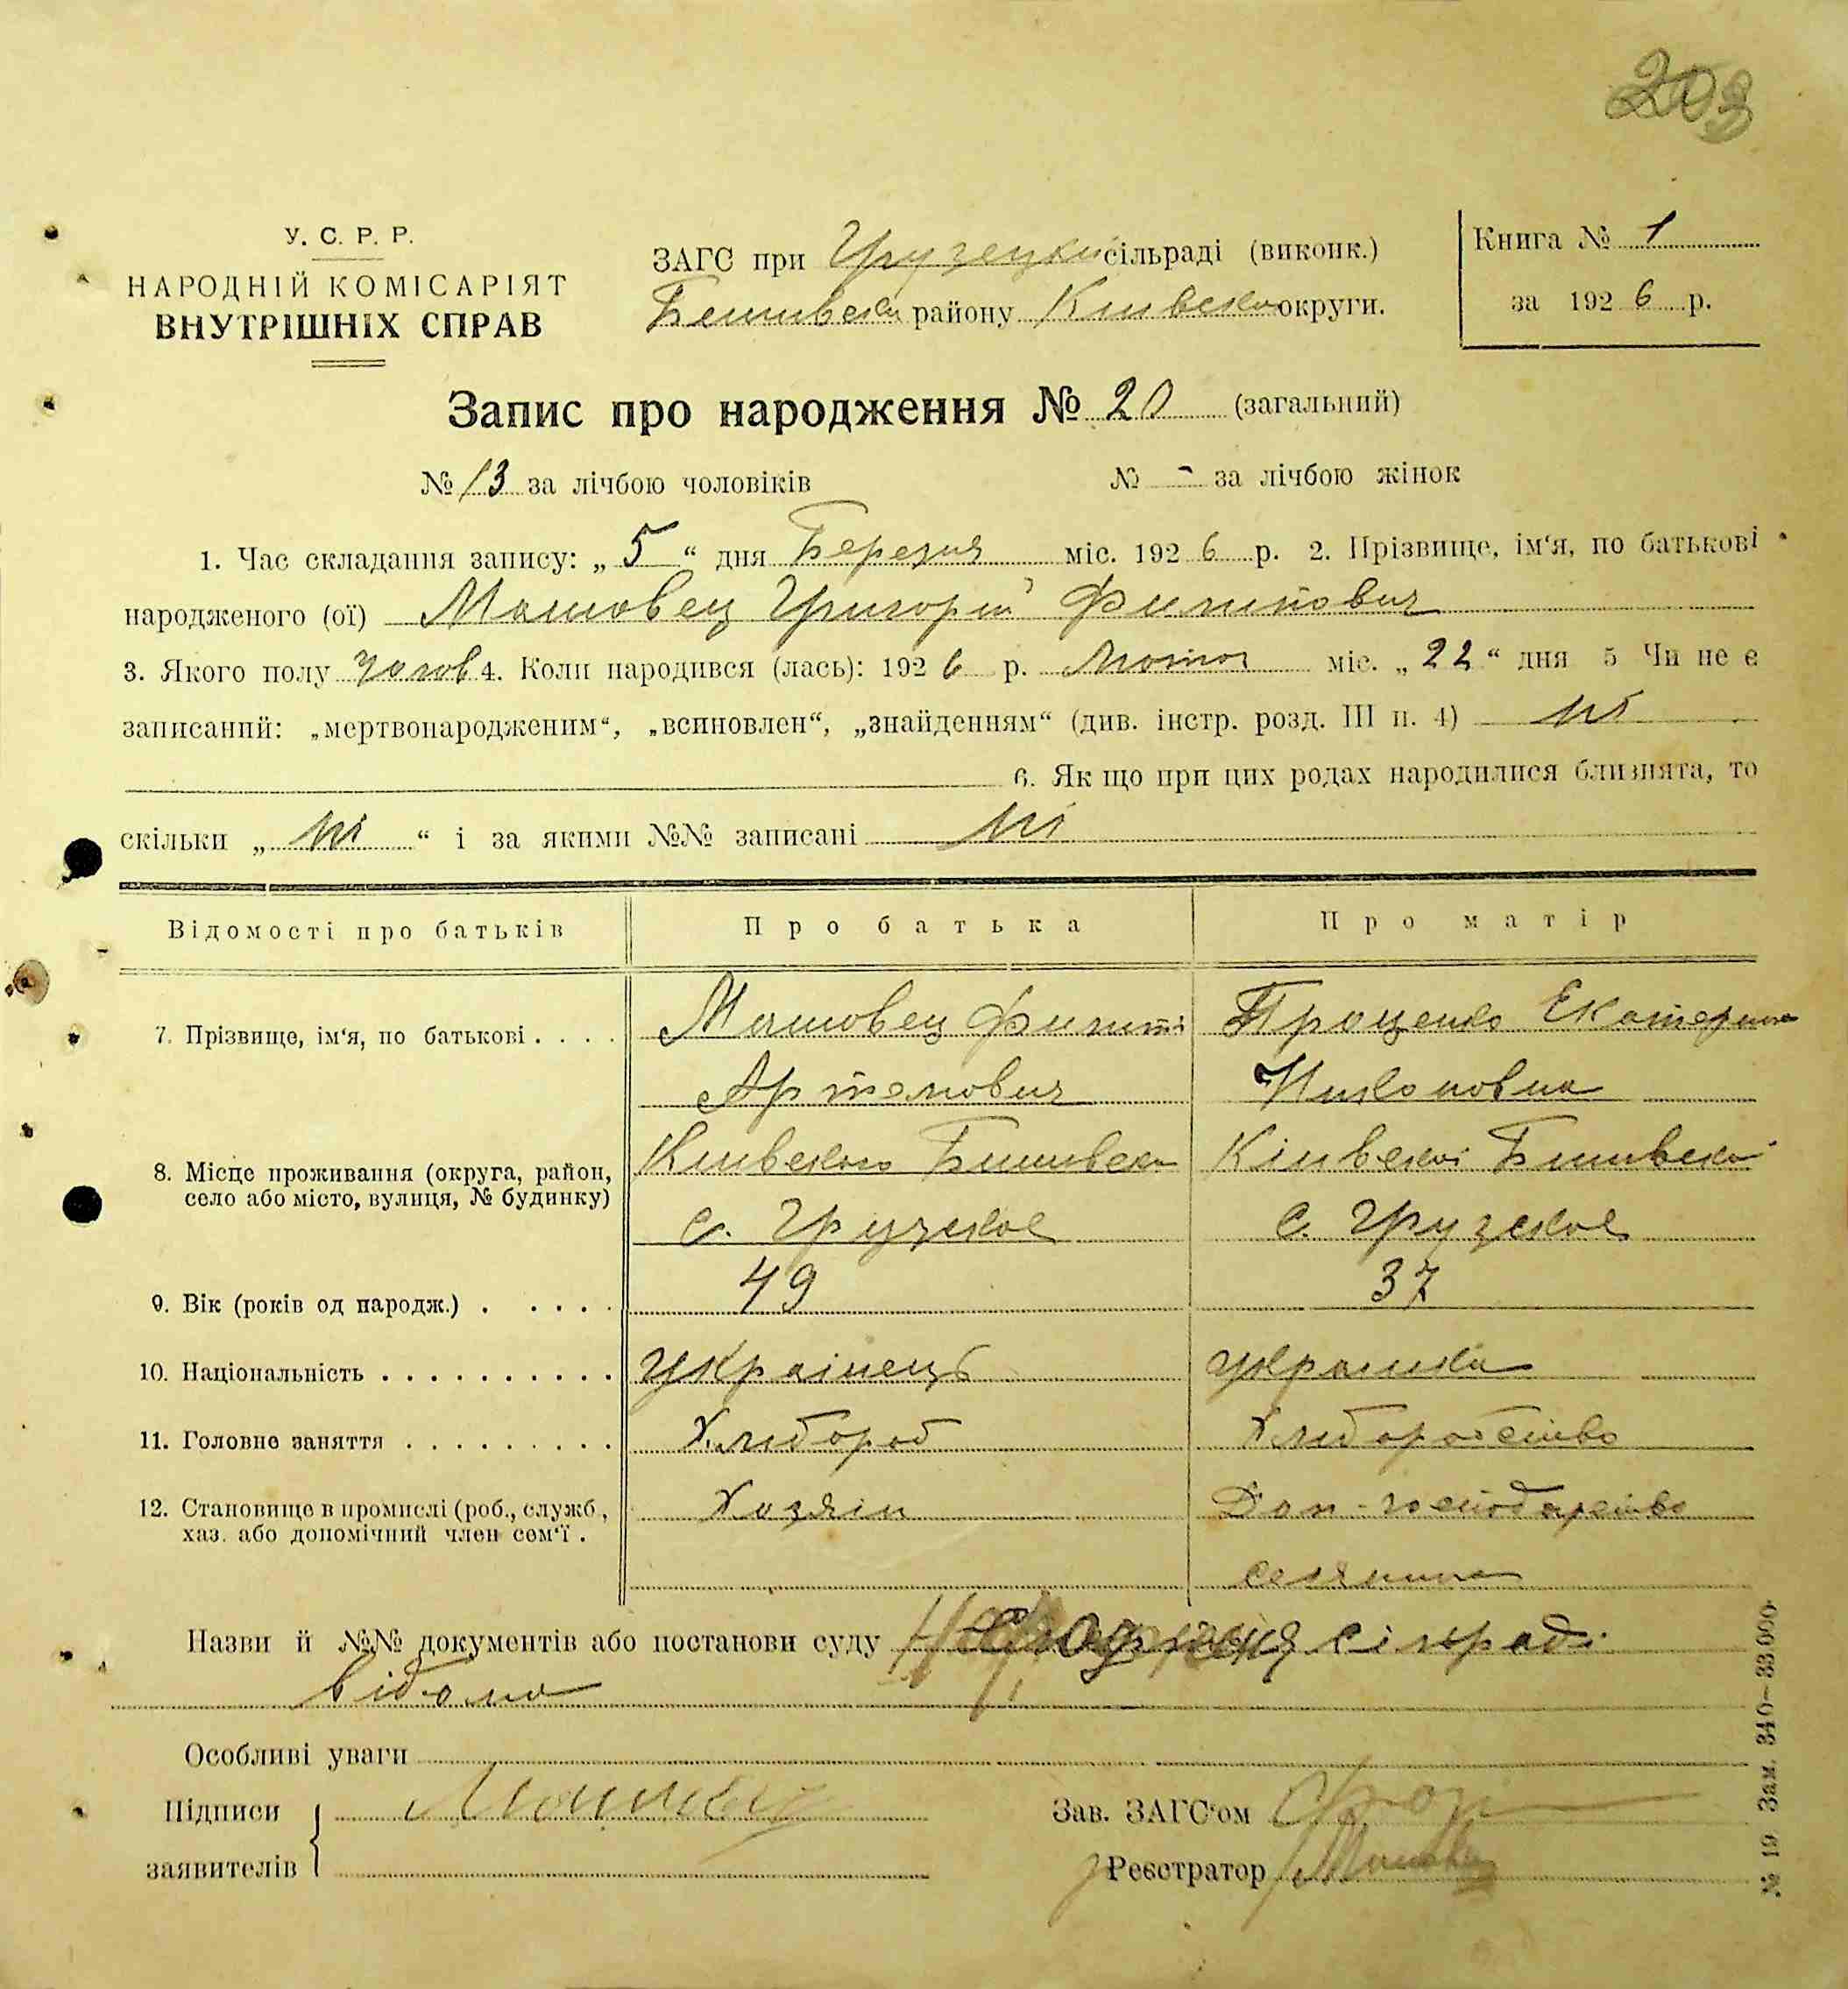 203
У. С. Р. Р.
НАРОДНІЙ КОМІСАРІЯТ
ВНУТРІШНІХ СПРАВ
ЗАГС при Грузецкій сільраді (виконк.)
Бишивска району Київска округи.
Книга № 1
за 1926 р.
Запис про народження № 20 (загальний)
№ 13 за лічбою чоловіків № - за лічбою жінок
1. Час складання запису: „ 5 “ дня Березня міс. 1926 р. 2. Прізвище, ім‘я, по батькові
народженого (ої) Машовец Григорій Филипович
3. Якого полу чолов 4. Коли народився (лась): 1926 р. Лютого міс. „ 22 “ дня 5 Чи не є
записаний: „мертвонародженим“, „всиновлен“, „знайденням“ (див. інстр. розд. III п. 4) ні
6. Як що при цих родах народилися близнята, то
скільки „ ні “ і за якими №№ записані ні
Відомості про батьків Про батька Про матір
7. Прізвище, ім‘я, по батькові . . . . Машовец Филип Проценко Екатерина
Артемович Никоновна
8. Місце проживання (округа, район, село або місто, вулиця, № будинку) Київского Бишивска Київскої Бишивскої
с. Грузское с. Грузское
9. Вік (років од народж.) . . . . . 49 37
10. Національність . . . . . . . . . . Українець Українка
11. Головне заняття . . . . . . . . . Хлібороб Хліборобство
12. Становище в промислі (роб., служб, хаз. або допомічний член сем‘ї . Хозяін Дом-господарство
селянина
Назви й №№ документів або постанови суду сілраді
відомо
Особливі уваги
Підписи заявителів Машовец
Зав. ЗАГС‘ом
Реєстратор
№ 19 Зам. 340–33.000.